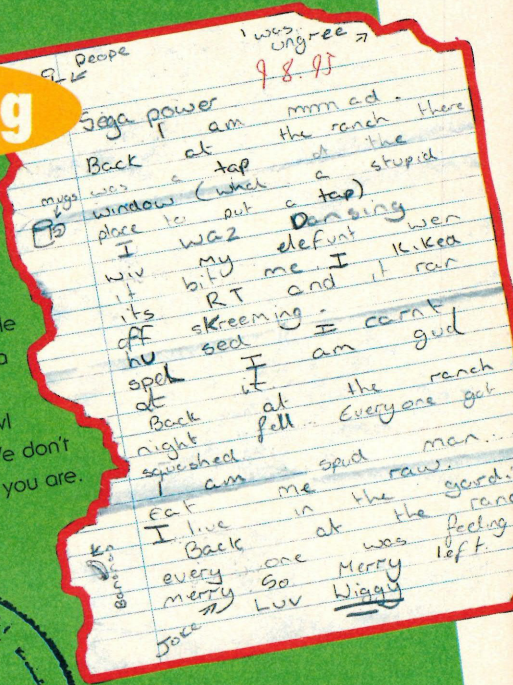 g
Deope
I was ungree
9.8.95
Sega power
I am mmm ad.
Back at the ranch there
was a tap at the
window (what a stupid
place to put a tap)
mugs
I waz Dansing
wiv my elefunt wen
it bit me. I kiked
its RT and it ran
off skreeming.
hu sed I carnt
spel I am gud
at it
Back at the ranch
night fell... Everyone got
squashed
I am spud man...
Eat me raw.
I live in the gardin
Back at the ranc
every one was feeling
merry. So Merry left.
Joke
Luv Wiggy
Bananas
le
a
wl
e don't
you are.